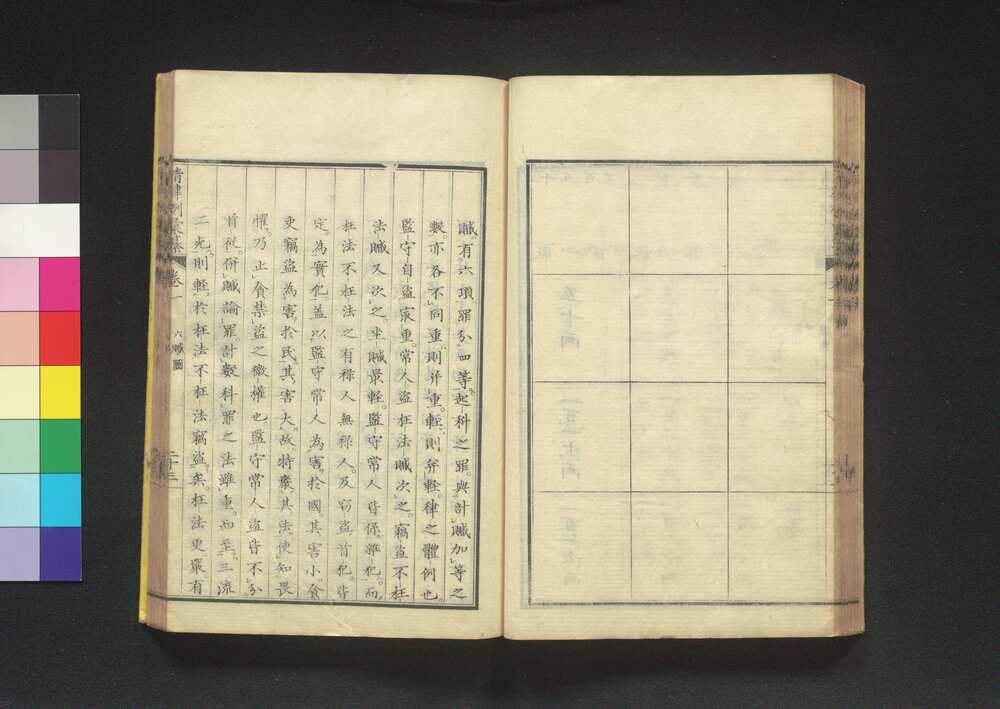 贓有六項罪分四等起科之罪與計贓加等之
數亦各不同重則并重輕則并輕律之體例也
監守自盜寂重常人盜枉法贓次之竊盜不枉
法贓又次之坐贓最輕監守常人皆係雜犯而
枉法不枉法之有祿人無祿人及窃盜首犯皆
定為實犯蓋以監守常人為害於國其害小貪
吏竊盜為害於民其害大故特嚴其法使知畏
懼乃止貪禁盜之微權也監守常人盜皆不分
首從併贓論罪計數科罪之法雖重而至三流
二死則輕於枉法不枉法竊盜矣枉法更嚴有
清律例彙纂 卷一 六贓圖 二十三